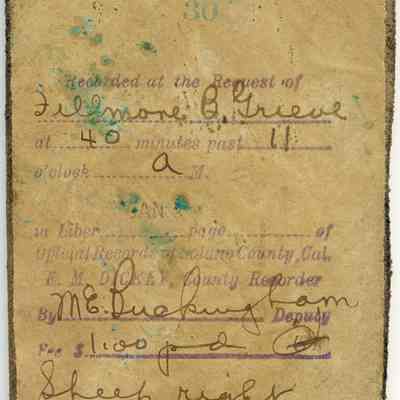 30
Recorded at the Request of
Fillmore B. Grieve
at 40 minutes past 11
o'clock A M.
JAN 3
in Liber page of
Official Records of Solano County, Cal.
F. M. DICKEY, County Recorder
By M E. Buckingham Deputy
Fee $ 1.00 pd
Sheep right